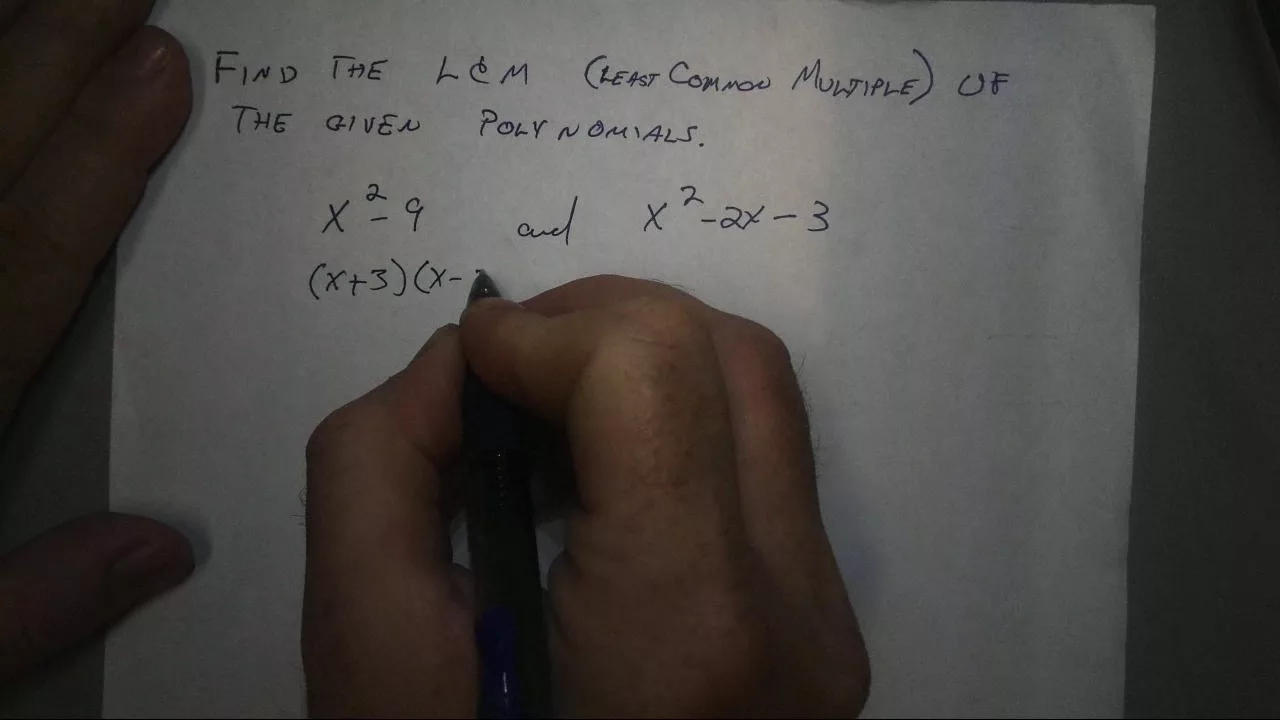 FIND THE LCM (LEAST COMMON MULTIPLE) OF
THE GIVEN POLYNOMIALS.
x² - 9 and x² - 2x - 3
(x+3)(x-